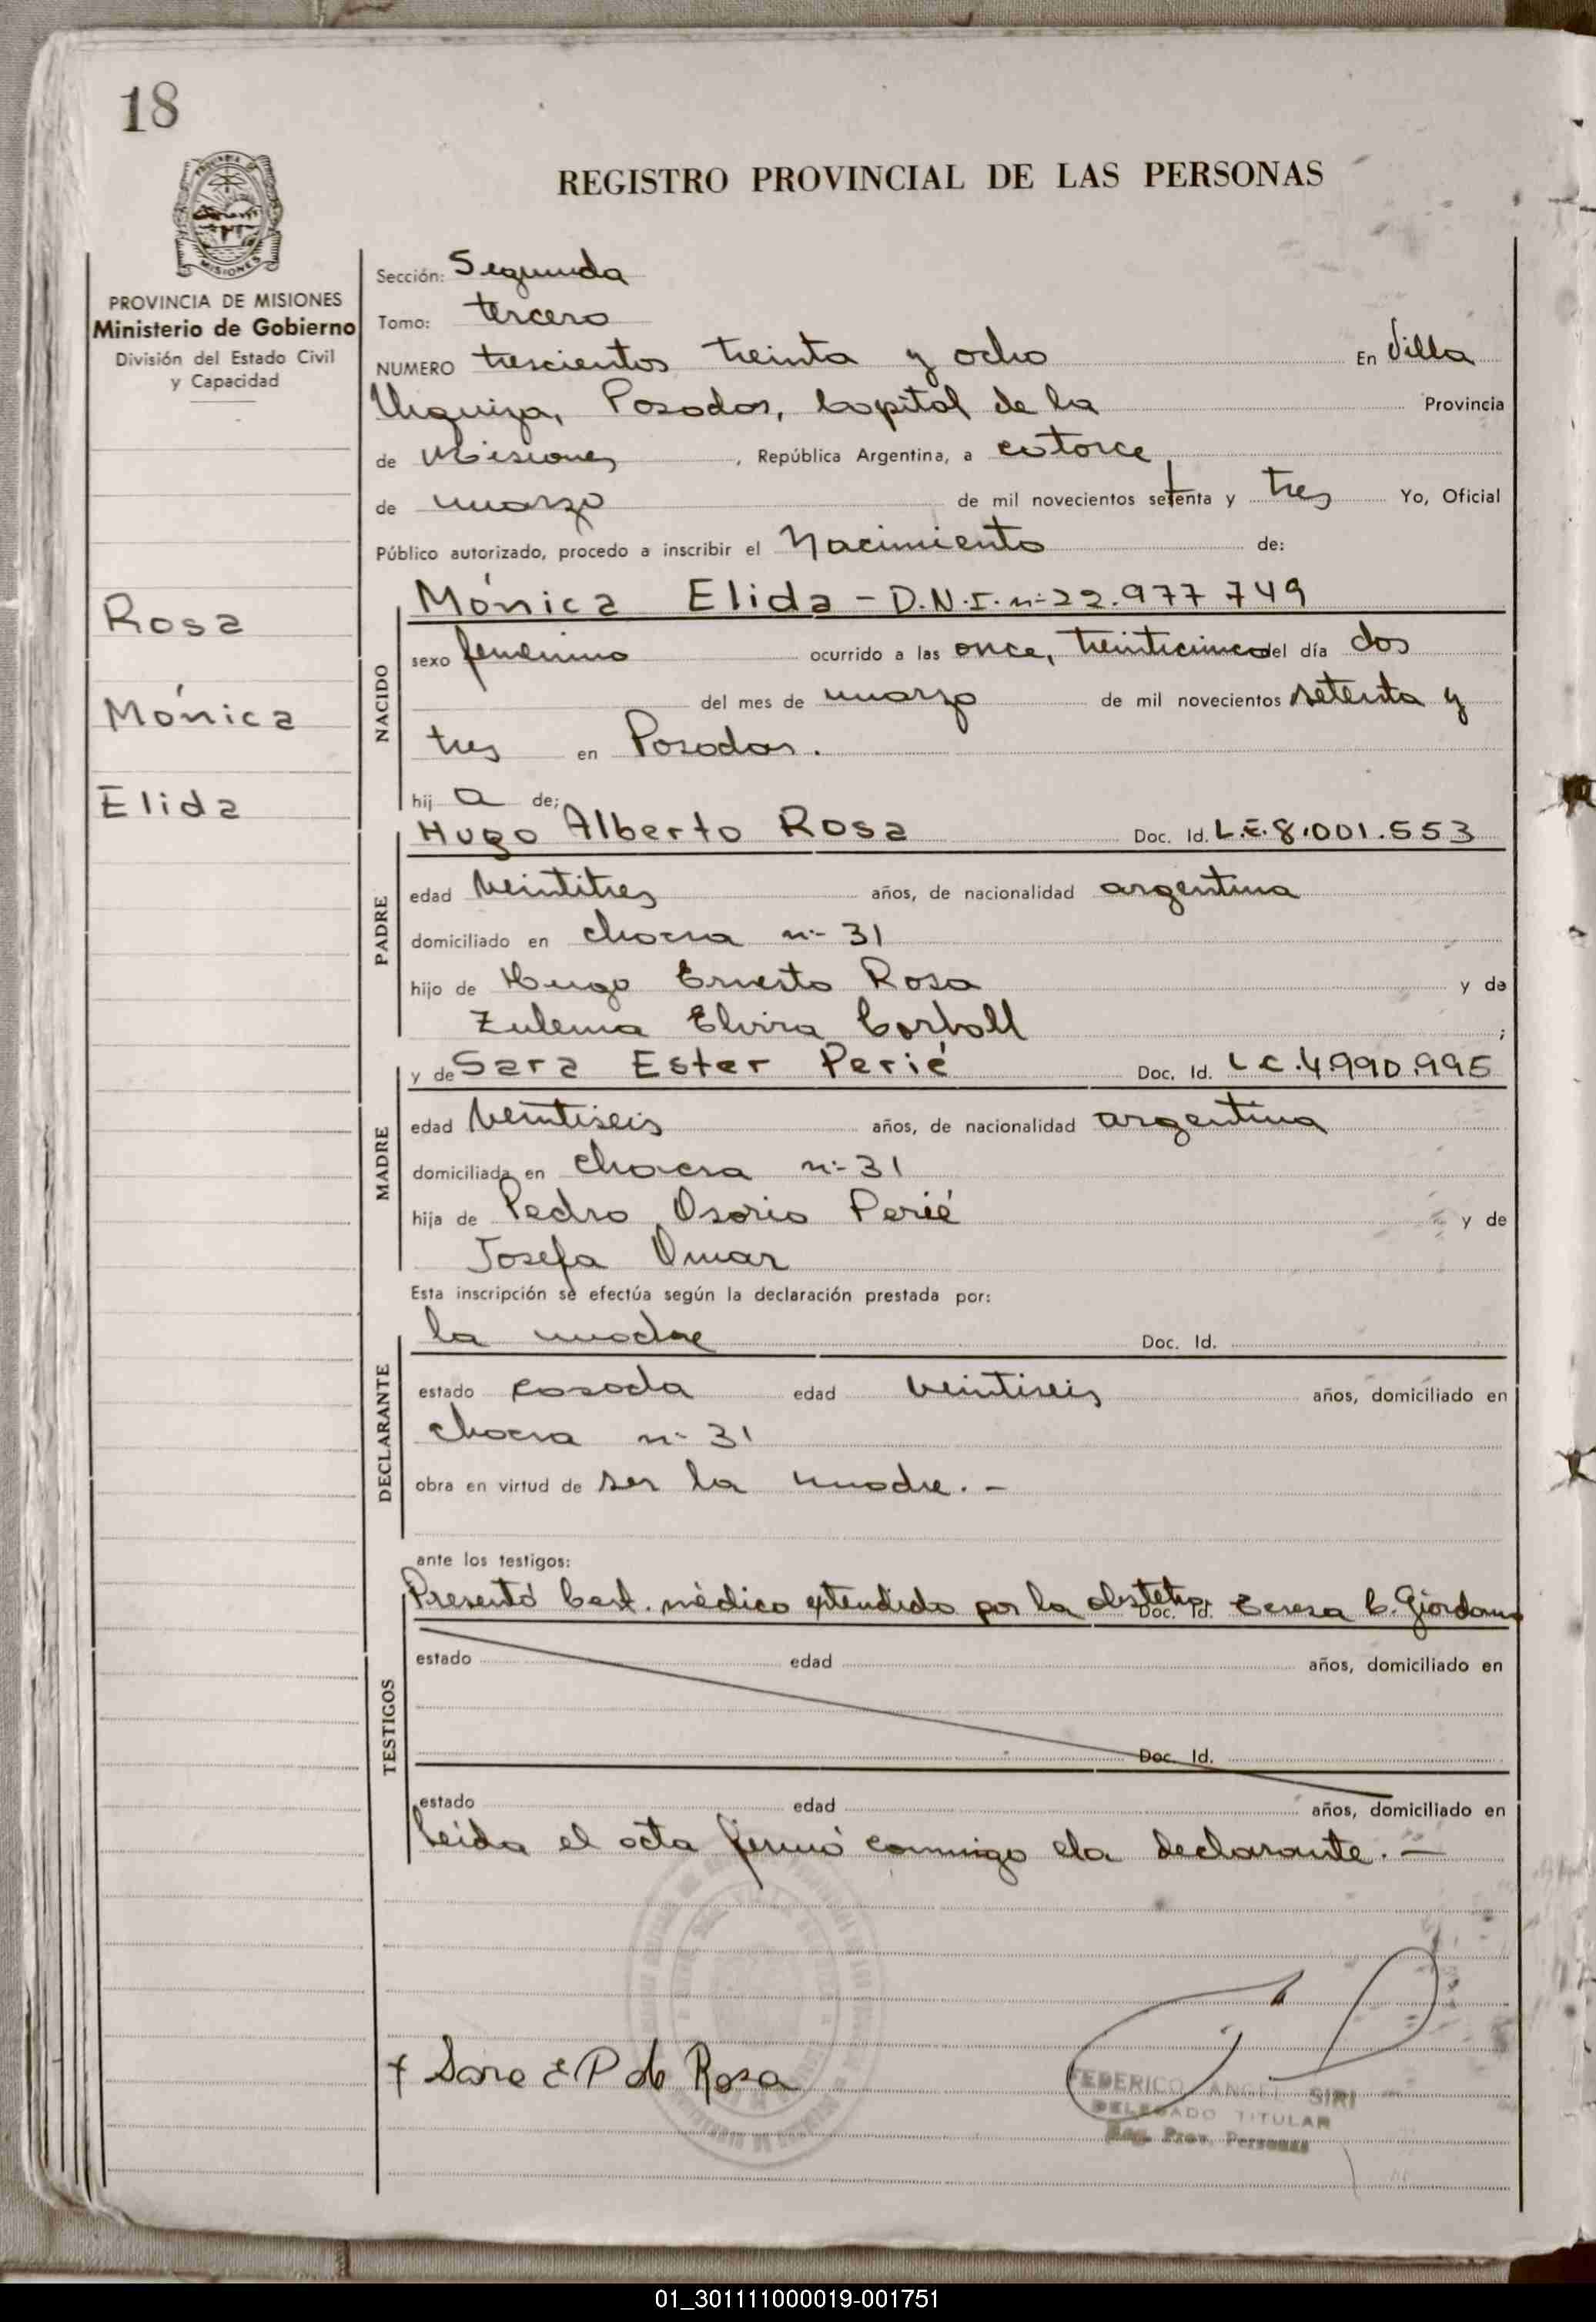 18
REGISTRO PROVINCIAL DE LAS PERSONAS
MISIONES
PROVINCIA DE MISIONES
Ministerio de Gobierno
División del Estado Civil
y Capacidad
Rosa
Mónica
Elida
Sección: Segunda
Tomo: tercero
NUMERO trescientos treinta y ocho En Villa
Urquiza, Posadas, Capital de la Provincia
de Misiones, República Argentina, a catorce
de marzo de mil novecientos setenta y tres Yo, Oficial
Público autorizado, procedo a inscribir el Nacimiento de:
NACIDO
Mónica Elida - D.N.I. nº 22.977 749
sexo femenino ocurrido a las once, treinticinco del día dos
del mes de marzo de mil novecientos setenta y
tres en Posadas.
hij a de;
PADRE
Hugo Alberto Rosa Doc. Id. L.E. 8.001.553
edad veintitres años, de nacionalidad argentina
domiciliado en chacra nº 31
hijo de Hugo Ernesto Rosa y de
Zulema Elvira ;
MADRE
y de Sara Ester Perié Doc. Id. L C. 4.990.995
edad veintiseis años, de nacionalidad argentina
domiciliada en chacra nº 31
hija de Pedro Osorio Perié y de
Josefa Omar
Esta inscripción se efectúa según la declaración prestada por:
DECLARANTE
la madre Doc. Id.
estado casada edad veintiseis años, domiciliado en
chacra nº 31
obra en virtud de ser la madre. -
ante los testigos:
TESTIGOS
Presentó Cert. médico extendido por la obstetra Doc. Id. Teresa C. Giordano
estado edad años, domiciliado en
Doc. Id.
estado edad años, domiciliado en
Leida el acta firmó conmigo la declarante. -
+ Sara E P de Rosa
FEDERICO ANGEL SIRI
DELEGADO TITULAR
Reg. Prov. Personas
01_301111000019-001751